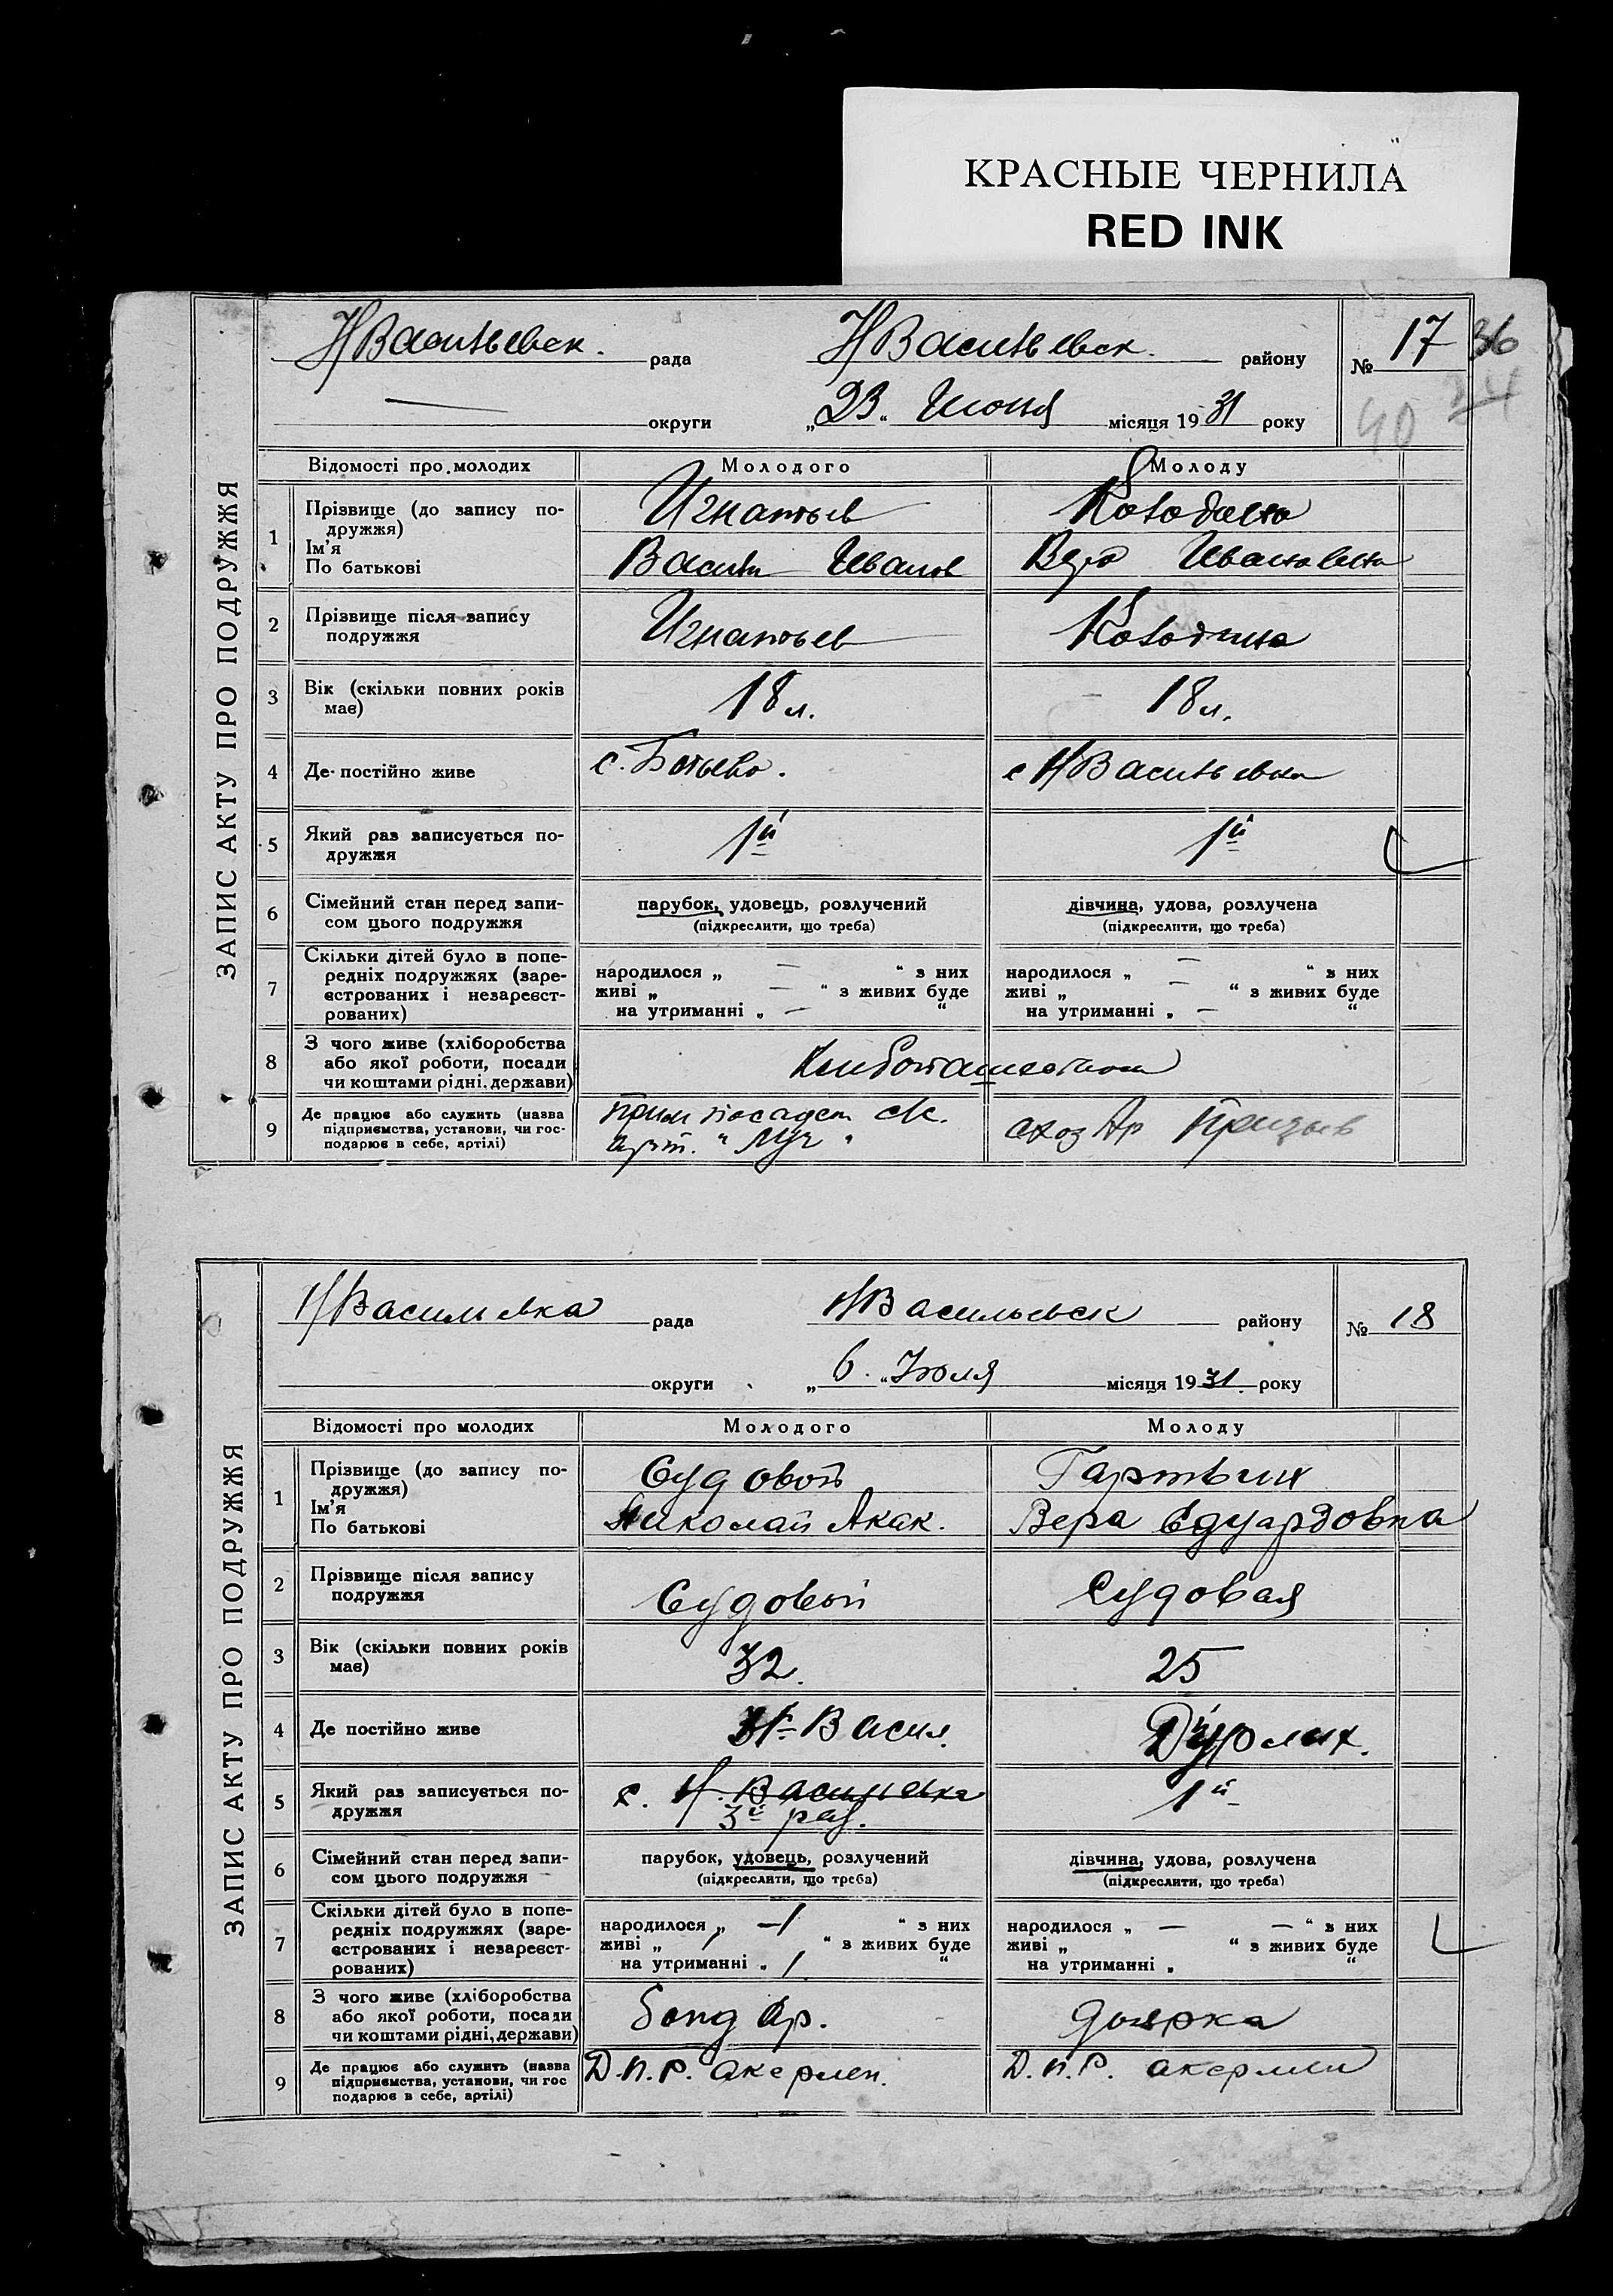 КРАСНЫЕ ЧЕРНИЛА
RED INK
ЗАПИС АКТУ ПРО ПОДРУЖЖЯ
Н/Васильевск. рада Н/Васильевск. району № 17 36
— округи „23“ Июня місяця 1931 року 40 24
Відомості про молодих Молодого Молоду
1 Прізвище (до запису по-
дружжя) Игнатьев
Ім'я
По батькові Васили Иванов Вера Ивановна
2 Прізвище після запису
подружжя Игнатьев
3 Вік (скільки повних років
має) 18 л. 18 л.
4 Де постійно живе с. Ботьево. с Н/Васильевка
5 Який раз записується по-
дружжя 1й 1й
6 Сімейний стан перед запи-
сом цього подружжя парубок, удовець, розлучений дівчина, удова, розлучена
(підкреслити, що треба) (підкреслити, що треба)
7 Скільки дітей було в попе-
редніх подружжях (заре-
єстрованих і незареєст-
рованих)
народилося „ — “ з них народилося „ — “ з них
живі „ — “ з живих буде живі „ — “ з живих буде
на утриманні „ — “ на утриманні „ — “
8 З чого живе (хліборобства
або якої роботи, посади
чи коштами рідні, держави) Хлибопашеством
9 Де працює або служить (назва
підприємства, установи, чи гос-
подарює в себе, артілі)
арт. "Луч" Призыв
ЗАПИС АКТУ ПРО ПОДРУЖЖЯ
Н/Васильевка рада Н/Васильевск району № 18
округи „6.“ Июля місяця 1931. року
Відомості про молодих Молодого Молоду
1 Прізвище (до запису по-
дружжя) Судовой Гартвих
Ім'я
По батькові Николай Акак. Вера Едуардовна
2 Прізвище після запису
подружжя Судовой Судовая
3 Вік (скільки повних років
має) 32. 25
4 Де постійно живе Н-Васил. Дурлих.
5 Який раз записується по-
дружжя с. Н. Васильевка 1й
3й раз.
6 Сімейний стан перед запи-
сом цього подружжя парубок, удовець, розлучений дівчина, удова, розлучена
(підкреслити, що треба) (підкреслити, що треба)
7 Скільки дітей було в попе-
редніх подружжях (заре-
єстрованих і незареєст-
рованих)
народилося „ —1 “ з них народилося „ — — “ з них
живі „ 1 “ з живих буде живі „ “ з живих буде
на утриманні „ 1 “ на утриманні „ “
8 З чого живе (хліборобства
або якої роботи, посади
чи коштами рідні, держави) Бондар. доярка
9 Де працює або служить (назва
підприємства, установи, чи гос
подарює в себе, артілі) Д.П.Р. Акермен. Д.П.Р. акермен